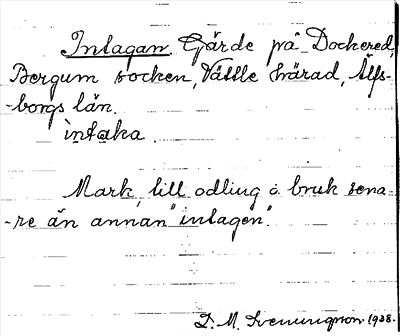 Intagan Gärde på Dockered,
Bergum socken, Vättle härad, Älfs-
-borgs län.
intaka.
Mark, till odling o. bruk sena-
-re än annan "intagen".
D. M. Svenungsson 1938.